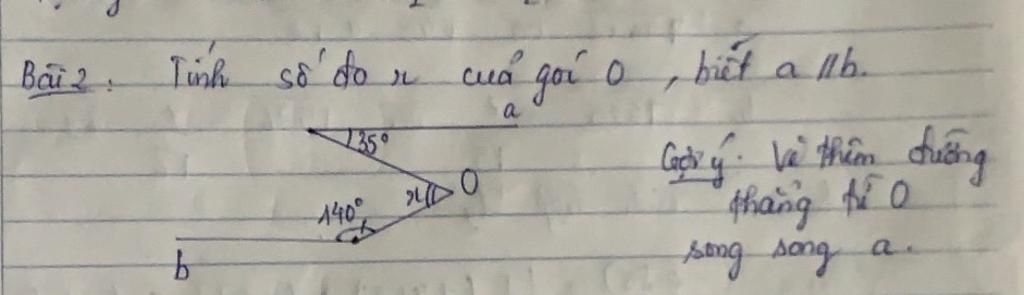 Bài 2: Tính số đo x của goí O, biết a // b.
a
35°
Gợi ý. Vẽ thêm đường
x O
thẳng từ O
140°
song song a.
b